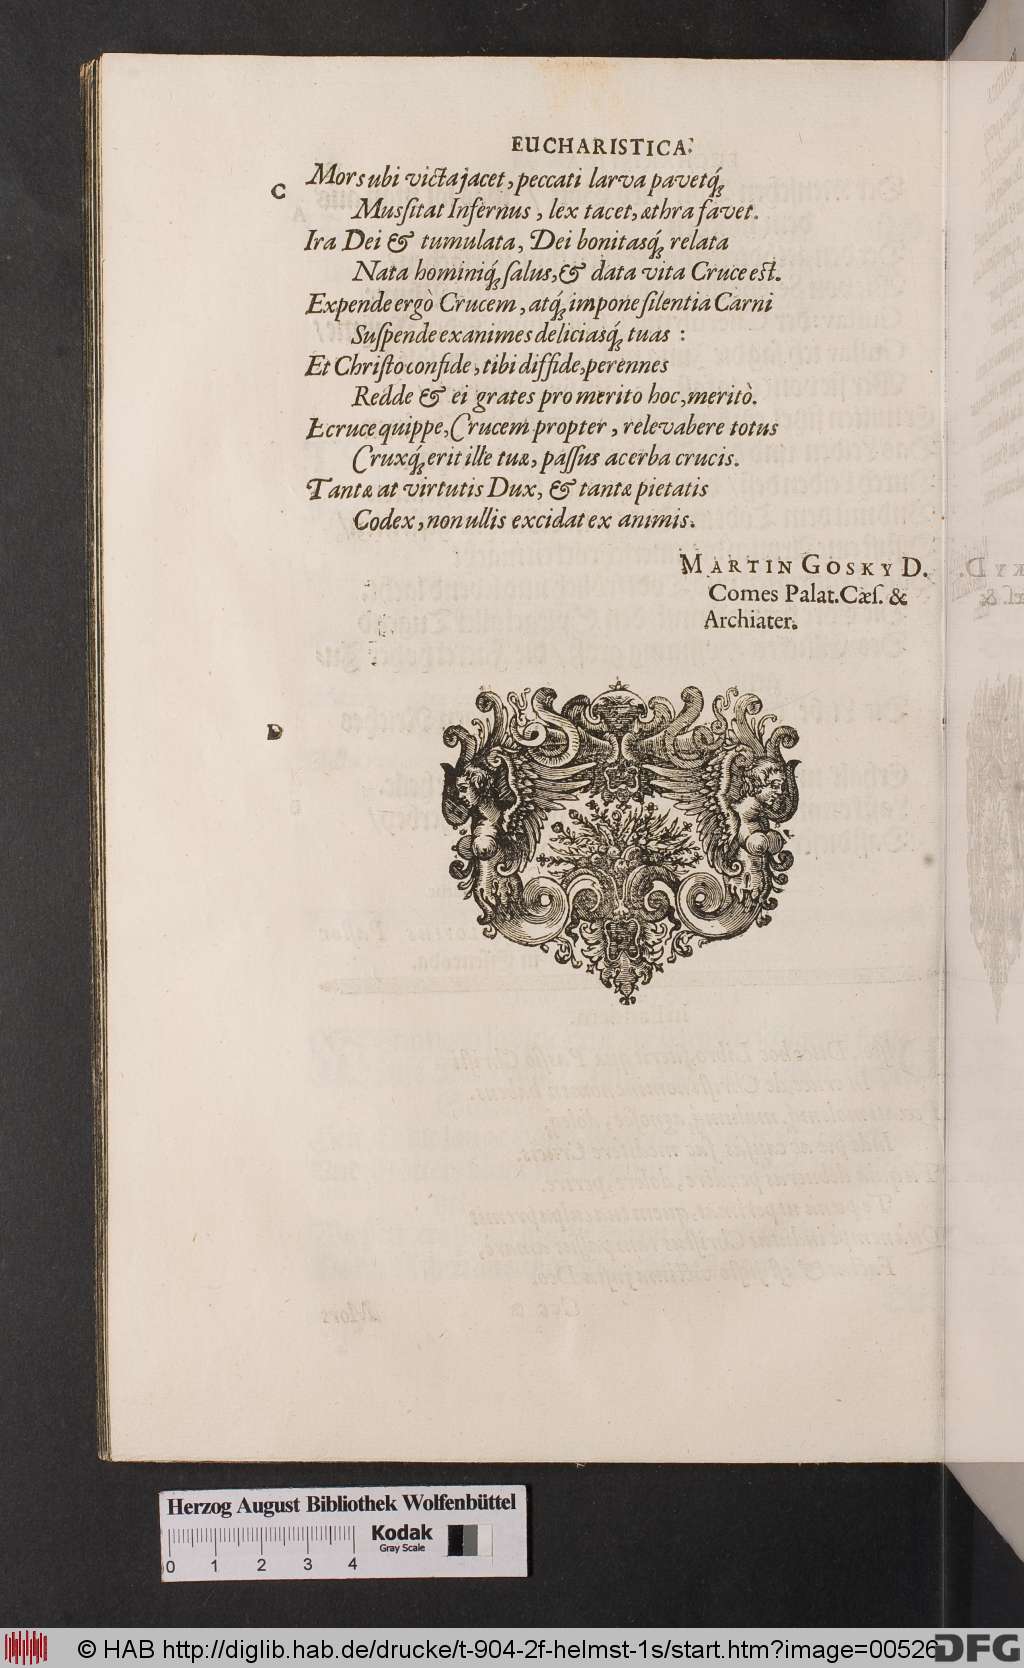 EUCHARISTICA.
C
Mors ubi victa jacet, peccati larva pavetq́;
Musſitat Infernus, lex tacet, æthra favet.
Ira Dei & tumulata, Dei bonitasq́; relata
Nata hominiq́; ſalus, & data vita Cruce eſt.
Expende ergò Crucem, atq́; impone ſilentia Carni
Suſpende exanimes deliciasq́; tuas :
Et Chriſto confide, tibi diffide, perennes
Redde & ei grates pro merito hoc, meritò.
E cruce quippe, Crucem propter, relevabere totus
Cruxq́; erit ille tuæ, paſſus acerba crucis.
Tantæ at virtutis Dux, & tantæ pietatis
Codex, non ullis excidat ex animis.
MARTIN GOSKY D.
Comes Palat. Cæſ. &
Archiater.
D
Herzog August Bibliothek Wolfenbüttel
0 1 2 3 4
Kodak
Gray Scale
© HAB http://diglib.hab.de/drucke/t-904-2f-helmst-1s/start.htm?image=00526
DFG